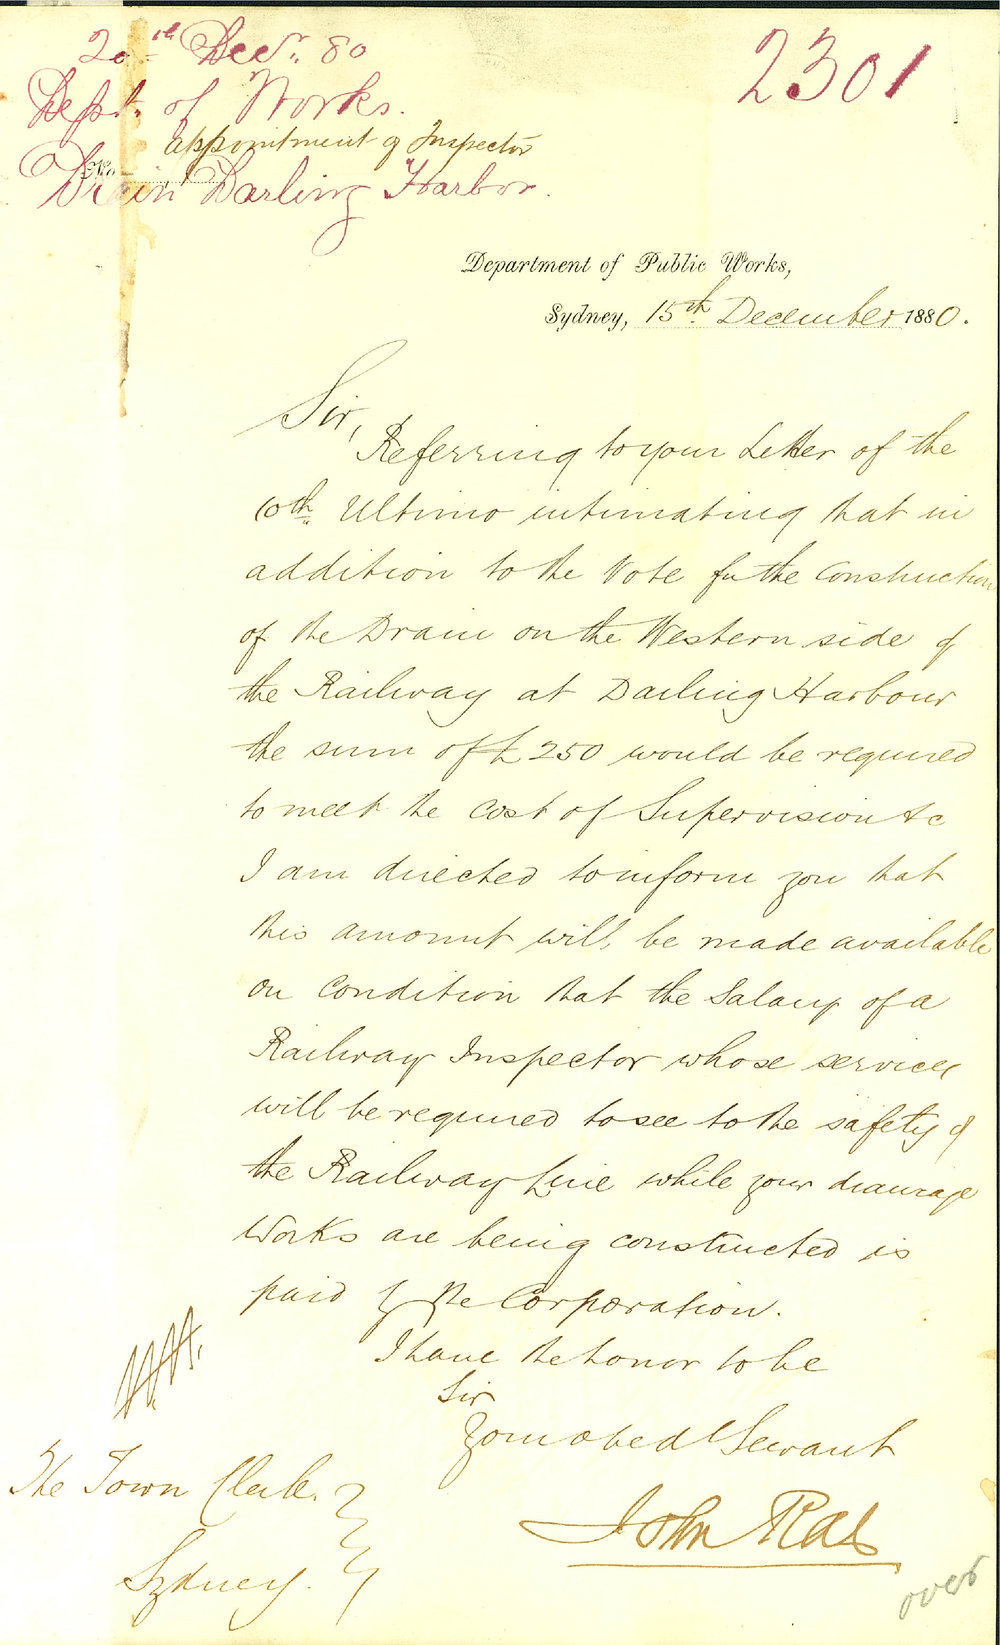 20th Decr. 80
2301
Dept. of Works.
Appointment of Inspector
No.
Drain Darling Harbor.
Department of Public Works,
Sydney, 15th December 1880.
Sir,
Referring to your Letter of the
10th Ultimo intimating that in
addition to the Vote for the Construction
of the Drain on the Western side of
the Railway at Darling Harbour
the sum of £250 would be required
to meet the cost of Supervision &c
I am directed to inform you that
this amount will be made available
on condition that the Salary of a
Railway Inspector whose services
will be required to see to the safety of
the Railway Line while your drainage
Works are being constructed is
paid by the Corporation.
I have the honor to be
Sir
Your obed Servant
John Rae
The Town Clerk.
Sydney.
over